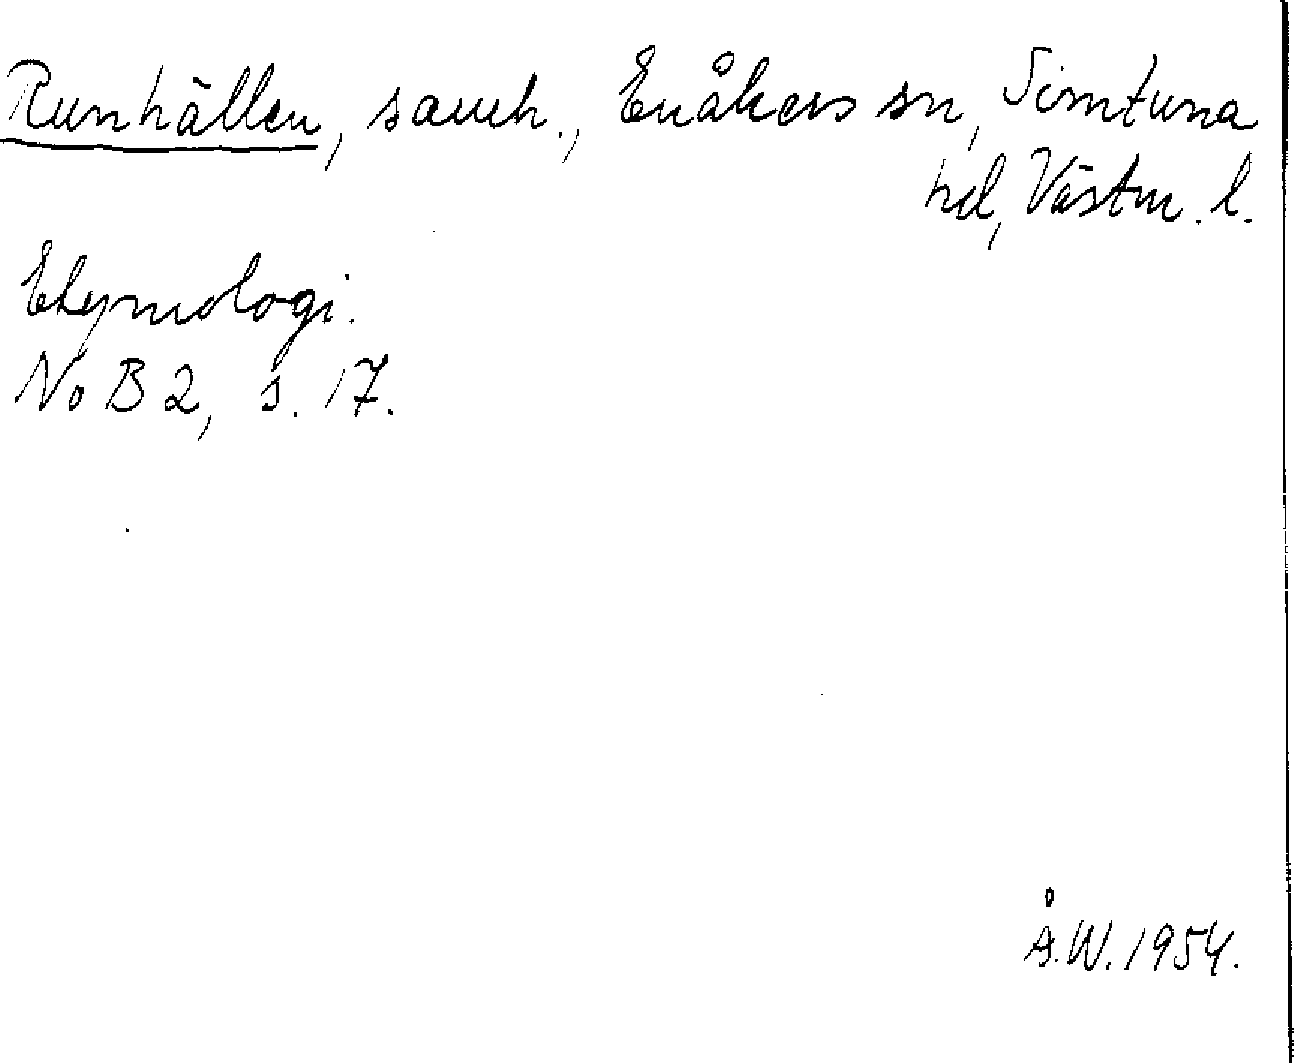 Runhällen, samh., Enåkers sn, Simtuna
hd, Västm. l.
Etymologi.
NoB 2, s. 17.
Å.W. 1954.